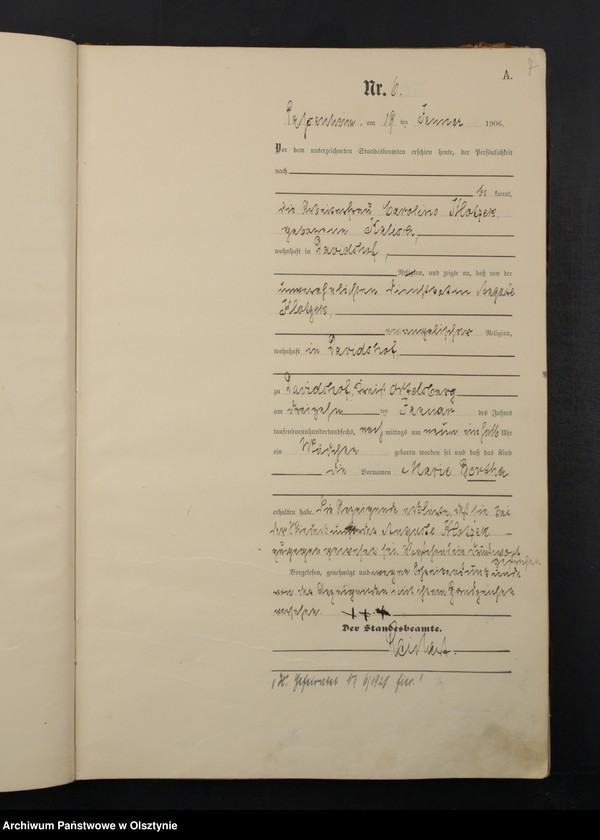 A.
7
Nr. 6.
am 19 ten Januar 1906.
Vor dem unterzeichneten Standesbeamten erschien heute, der Persönlichkeit
nach
be kannt,
die Arbeiterfrau Caroline Klotzek
geborene
wohnhaft in Davidshof,
Religion, und zeigte an, daß von der
unverehelichten Auguste
Klotzek,
evangelischer Religion,
wohnhaft in Davidshof,
zu Davidshof, Kreis Ortelsburg
am dreizehn ten Januar des Jahres
tausendneunhundertundsechs, nach mittags um neun einhalb Uhr
ein Mädchen geboren worden sei und daß das Kind
die Vornamen Marie Bertha
erhalten habe. Die Anzeigende erklärte, daß sie bei
der Niederkunft der Auguste Klotzek
zugegen gewesen sei.
Vorgelesen, genehmigt und wegen Schreibensunkunde
von der Anzeigenden mit ihrem Handzeichen
versehen. +++
Der Standesbeamte.
Archiwum Państwowe w Olsztynie